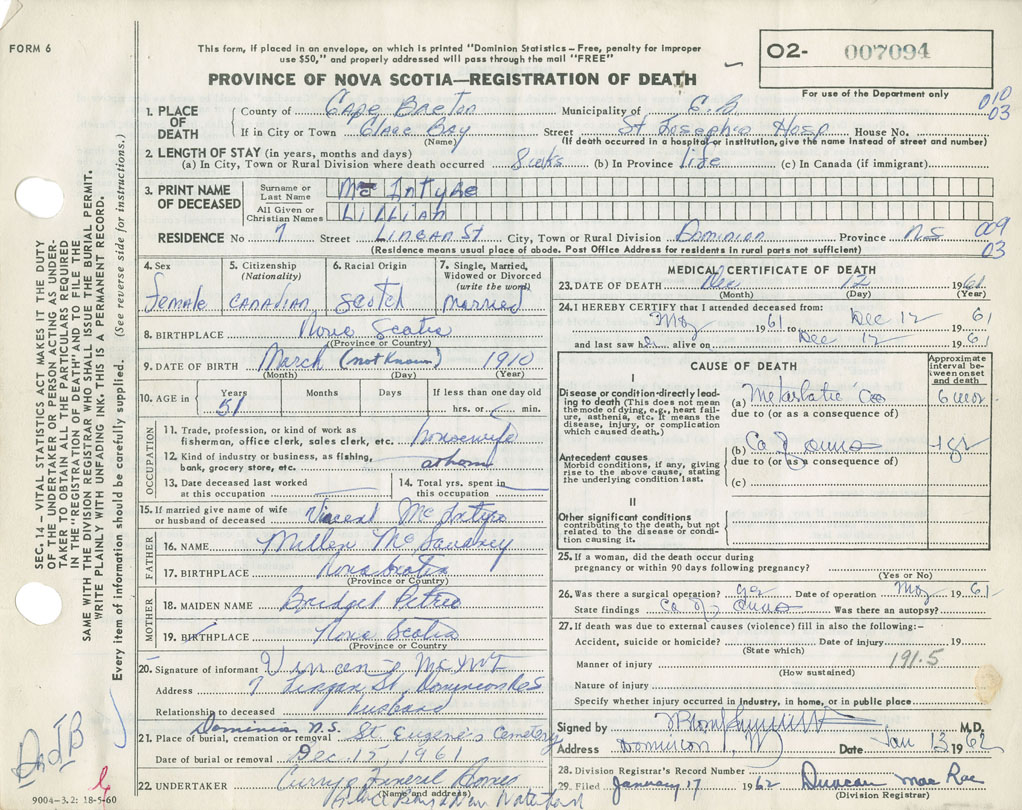 FORM 6
This form, if placed in an envelope, on which is printed "Dominion Statistics – Free, penalty for improper
use $50," and properly addressed will pass through the mail "FREE"
PROVINCE OF NOVA SCOTIA—REGISTRATION OF DEATH
O2- 007094
For use of the Department only
010
03
1. PLACE OF DEATH
County of Cape Breton Municipality of C.B
If in City or Town Glace Bay Street St Joseph's Hosp House No.
(Name) (If death occurred in a hospital or institution, give the name instead of street and number)
2. LENGTH OF STAY (in years, months and days)
(a) In City, Town or Rural Division where death occurred (b) In Province life (c) In Canada (if immigrant)
3. PRINT NAME OF DECEASED
Surname or Last Name Mc Intyre
All Given or Christian Names Lillian
RESIDENCE No 7 Street Lingan St City, Town or Rural Division Dominion Province N.S
009
03
(Residence means usual place of abode. Post Office Address for residents in rural parts not sufficient)
4. Sex Female
5. Citizenship (Nationality) Canadian
6. Racial Origin Scotch
7. Single, Married, Widowed or Divorced (write the word) Married
8. BIRTHPLACE Nova Scotia
(Province or Country)
9. DATE OF BIRTH March (not known) 1910
(Month) (Day) (Year)
10. AGE in Years 51 Months Days If less than one day old
hrs. or min.
OCCUPATION
11. Trade, profession, or kind of work as
fisherman, office clerk, sales clerk, etc. housewife
12. Kind of industry or business, as fishing,
bank, grocery store, etc. at home
13. Date deceased last worked
at this occupation
14. Total yrs. spent in
this occupation
15. If married give name of wife
or husband of deceased Vincent McIntyre
FATHER
16. NAME
17. BIRTHPLACE Nova Scotia
(Province or Country)
MOTHER
18. MAIDEN NAME Bridget Petrie
19. BIRTHPLACE Nova Scotia
(Province or Country)
20. Signature of informant Vincent
Address 7 Lingan St, Dominion N S
Relationship to deceased husband
Dominion N.S.
21. Place of burial, cremation or removal St Eugene's Cemetery
Date of burial or removal Dec 15 1961
22. UNDERTAKER Curry's Funeral Home
(Name and address)
MEDICAL CERTIFICATE OF DEATH
23. DATE OF DEATH Dec 12 1961
(Month) (Day) (Year)
24. I HEREBY CERTIFY that I attended deceased from:
May 1961 to Dec 12 1961
and last saw her alive on Dec 12 1961
CAUSE OF DEATH
Approximate interval between onset and death
I
Disease or condition directly leading to death (This does not mean the mode of dying, e.g., heart failure, asthenia, etc. It means the disease, injury, or complication which caused death.)
(a) Metastatic Ca 6 mos
due to (or as a consequence of)
Antecedent causes
Morbid conditions, if any, giving rise to the above cause, stating the underlying condition last.
(b) Ca of 1 yr
due to (or as a consequence of)
(c)
II
Other significant conditions
contributing to the death, but not related to the disease or condition causing it.
25. If a woman, did the death occur during
pregnancy or within 90 days following pregnancy?
(Yes or No)
26. Was there a surgical operation? yes Date of operation May 1961
State findings Ca of Was there an autopsy?
27. If death was due to external causes (violence) fill in also the following:–
Accident, suicide or homicide? Date of injury 19
(State which)
Manner of injury 191.5
(How sustained)
Nature of injury
Specify whether injury occurred in industry, in home, or in public place
Signed by M.D.
Address Dominion Date Jan 13 1962
28. Division Registrar's Record Number
29. Filed January 17 1962 Duncan MacRae
(Division Registrar)
SEC. 14 – VITAL STATISTICS ACT MAKES IT THE DUTY
OF THE UNDERTAKER OR PERSON ACTING AS UNDER-
TAKER TO OBTAIN ALL THE PARTICULARS REQUIRED
IN THE "REGISTRATION OF DEATH" AND TO FILE THE
SAME WITH THE DIVISION REGISTRAR WHO SHALL ISSUE THE BURIAL PERMIT.
WRITE PLAINLY WITH UNFADING INK. THIS IS A PERMANENT RECORD.
Every item of information should be carefully supplied. (See reverse side for instructions.)
9004-3.2: 18-5-60